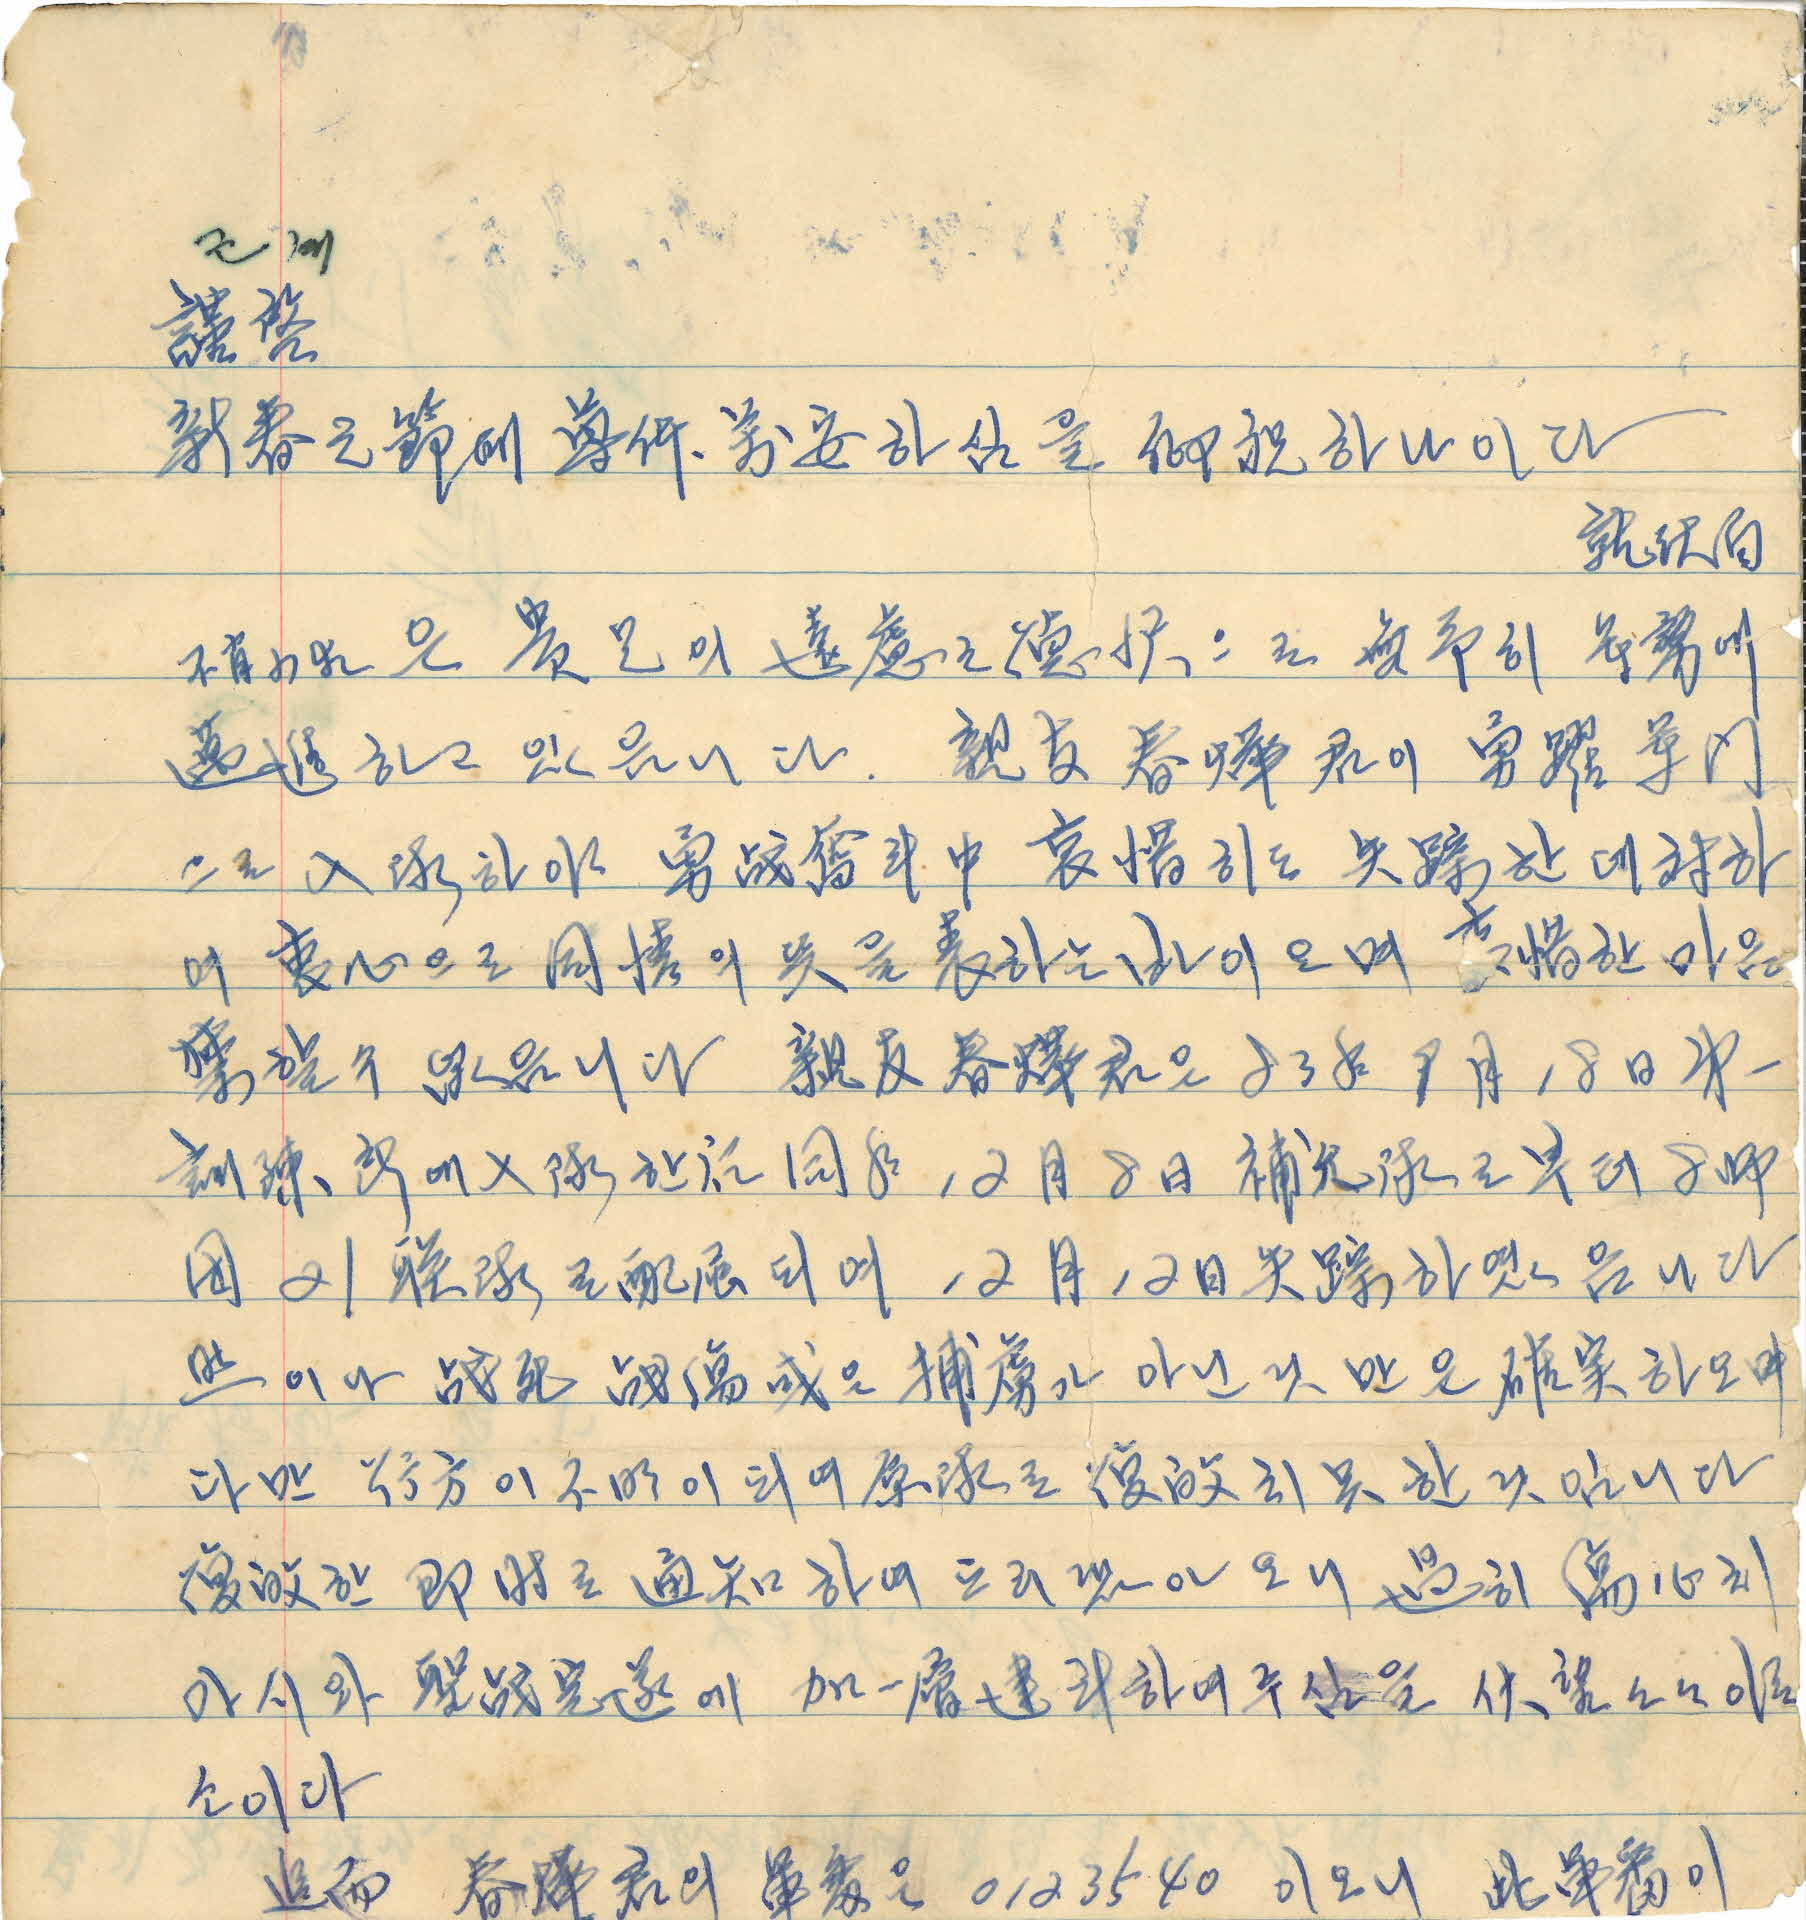 근계
謹啓
新春之節에 尊体 万安하심을 仰祝하나이다
就伏白
不肖 은 貴兄의 遠慮之德択으로 無事히 軍務에
邁進하고 있음니다. 親友 春燁君이 勇躍 軍門
으로 入隊하야 勇战奮斗中 哀惜히도 失踪한데 対하
여 衷心으로 同情의 뜻을 表하는 바이오며 哀惜한 마음
禁할 수 없음니다 親友 春燁君은 83年 9月 18日 第一
訓練所에 入隊한 後 同年 12月 8日 補充隊로부터 8师
团 21 联隊로 配属되여 12月 12日 失踪하였음니다
然이나 战死 战傷 或은 捕虜가 아닌 것만은 確実하오며
다만 行方이 不明이 되여 原隊로 復帰치 못한 것임니다
復帰한 即時로 通知하여 드리겠아오니 過히 傷心치
마시와 聖战完遂에 加一層 建斗하여 주심을 伏望
소이다
追而 春燁君의 軍番은 0123540 이오니 此軍番이